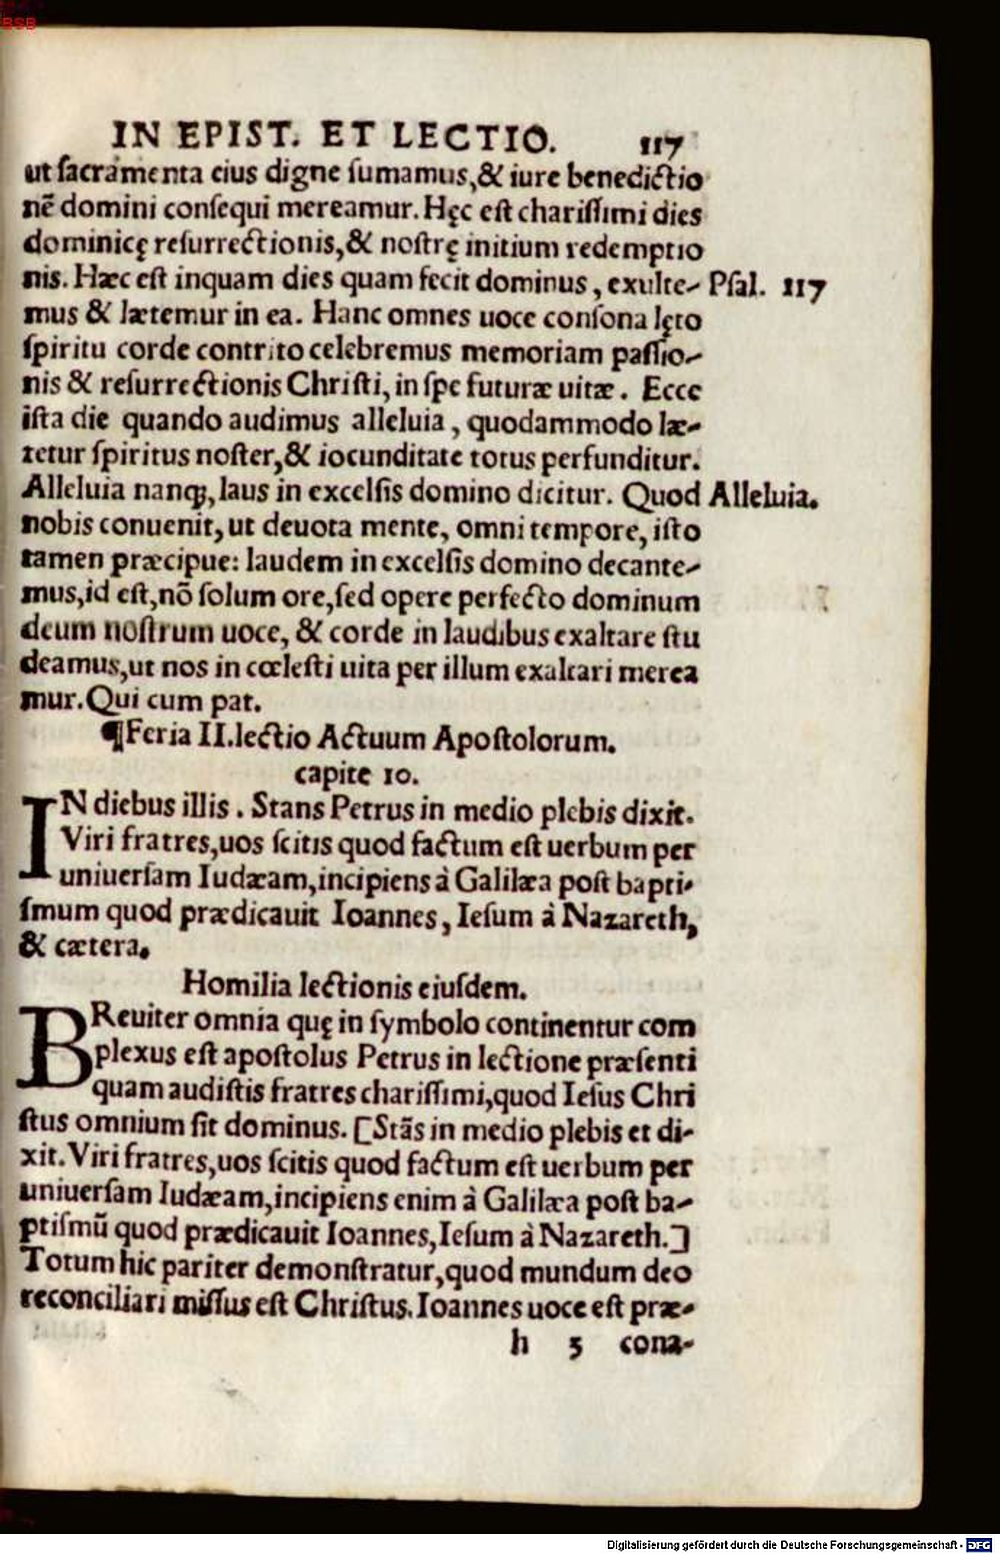 BSB
IN EPIST. ET LECTIO. 117
ut sacramenta eius digne sumamus,& iure benedictio
nē domini consequi mereamur. Hęc est charissimi dies
dominicę resurrectionis,& nostrę initium redemptio
nis. Hæc est inquam dies quam fecit dominus, exulte- Psal. 117
mus & lætemur in ea. Hanc omnes uoce consona lęto
spiritu corde contrito celebremus memoriam passio-
nis & resurrectionis Christi, in spe futuræ uitæ. Ecce
ista die quando audimus alleluia, quodammodo læ-
tetur spiritus noster,& iocunditate totus perfunditur.
Alleluia nanq;, laus in excelsis domino dicitur. Quod Alleluia.
nobis conuenit, ut deuota mente, omni tempore, isto
tamen præcipue: laudem in excelsis domino decante-
mus,id est,nō solum ore,sed opere perfecto dominum
deum nostrum uoce, & corde in laudibus exaltare stu
deamus,ut nos in cœlesti uita per illum exaltari merea
mur. Qui cum pat.
¶Feria II.lectio Actuum Apostolorum.
capite 10.
IN diebus illis. Stans Petrus in medio plebis dixit.
Viri fratres,uos scitis quod factum est uerbum per
uniuersam Iudæam,incipiens à Galilæa post bapti-
smum quod prædicauit Ioannes, Iesum à Nazareth,
& cætera.
Homilia lectionis eiusdem.
BReuiter omnia quę in symbolo continentur com
plexus est apostolus Petrus in lectione præsenti
quam audistis fratres charissimi,quod Iesus Chri
stus omnium sit dominus. [Stās in medio plebis et di-
xit. Viri fratres,uos scitis quod factum est uerbum per
uniuersam Iudæam,incipiens enim à Galilæa post ba-
ptismū quod prædicauit Ioannes,Iesum à Nazareth.]
Totum hic pariter demonstratur,quod mundum deo
reconciliari missus est Christus. Ioannes uoce est præ-
h 5 cona-
Digitalisierung gefördert durch die Deutsche Forschungsgemeinschaft - DFG